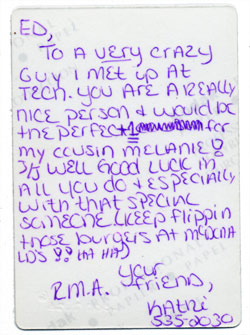 ED,
TO A VERY CRAZY
GUY I MET UP AT
TECH. YOU ARE A REALLY
NICE PERSON & WOULD BE
THE PERFECT FOR
MY COUSIN MELANIE!
WELL GOOD LUCK IN
ALL YOU DO & ESPECIALLY
WITH THAT SPECIAL
SOMEONE. KEEP FLIPPIN
THOSE BURGERS AT McDONA
LDS !! HA HA)
YOUR
R.M.A. FRIEND,
KATHI
535-2030